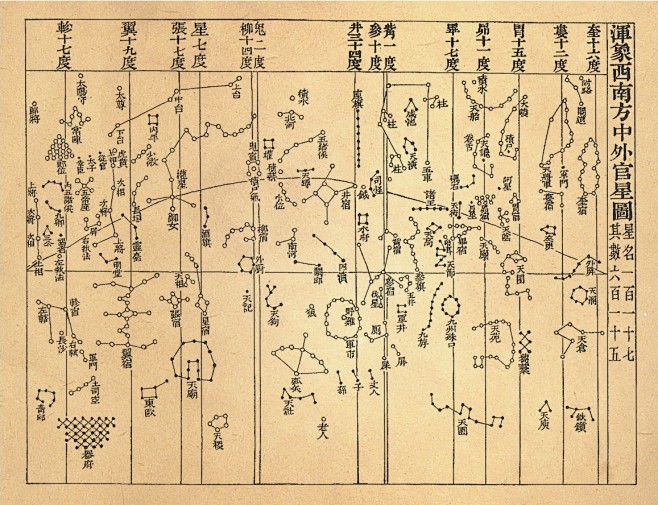 渾象西南方中外官星圖
星名一百一十七
其數六百一十五
奎十六度
婁十二度
胃十五度
昴十一度
畢十七度
觜一度
參十度
井三十四度
鬼二度
柳十四度
星七度
張十七度
翼十九度
軫十七度
附路
閣道
奎宿
外屏
天溷
天倉
鈇鑕
軍門
天庾
天船
積水
卷舌
天讒
積尸
大陵
胃宿
天囷
天苑
芻藁
礪石
天街
畢宿
天廩
天節
九州殊口
九斿
天園
諸王
天高
五車
柱
柱
柱
咸池
天潢
司怪
參旗
玉井
軍井
屏
厠
屎
丈人
子
孫
座旗
井宿
鉞
水府
四瀆
野雞
軍市
老人
狼
弧矢
天社
積水
北河
五諸侯
積薪
天罇
水位
南河
闕邱
爟
外廚
天狗
天記
柳宿
上台
中台
下台
內平
軒轅
御女
酒旗
天相
星宿
天稷
張宿
天廟
太尊
少微
虎賁
長垣
靈臺
明堂
翼宿
東甌
太陽守
常陳
郎位
郎將
太子
從官
幸臣
五帝座
內五諸侯
九卿
三公
謁者
左執法
右執法
上將
次將
次相
上相
軫宿
左轄
右轄
長沙
軍門
土司空
青邱
器府